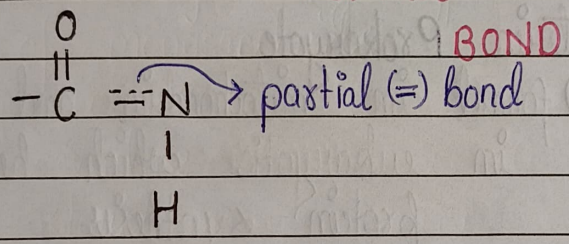 O
BOND
||
- C = N → partial (=) bond
|
H